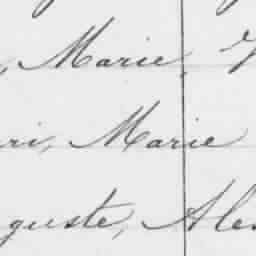 , Marie,
ri, Marie
guste, Ales